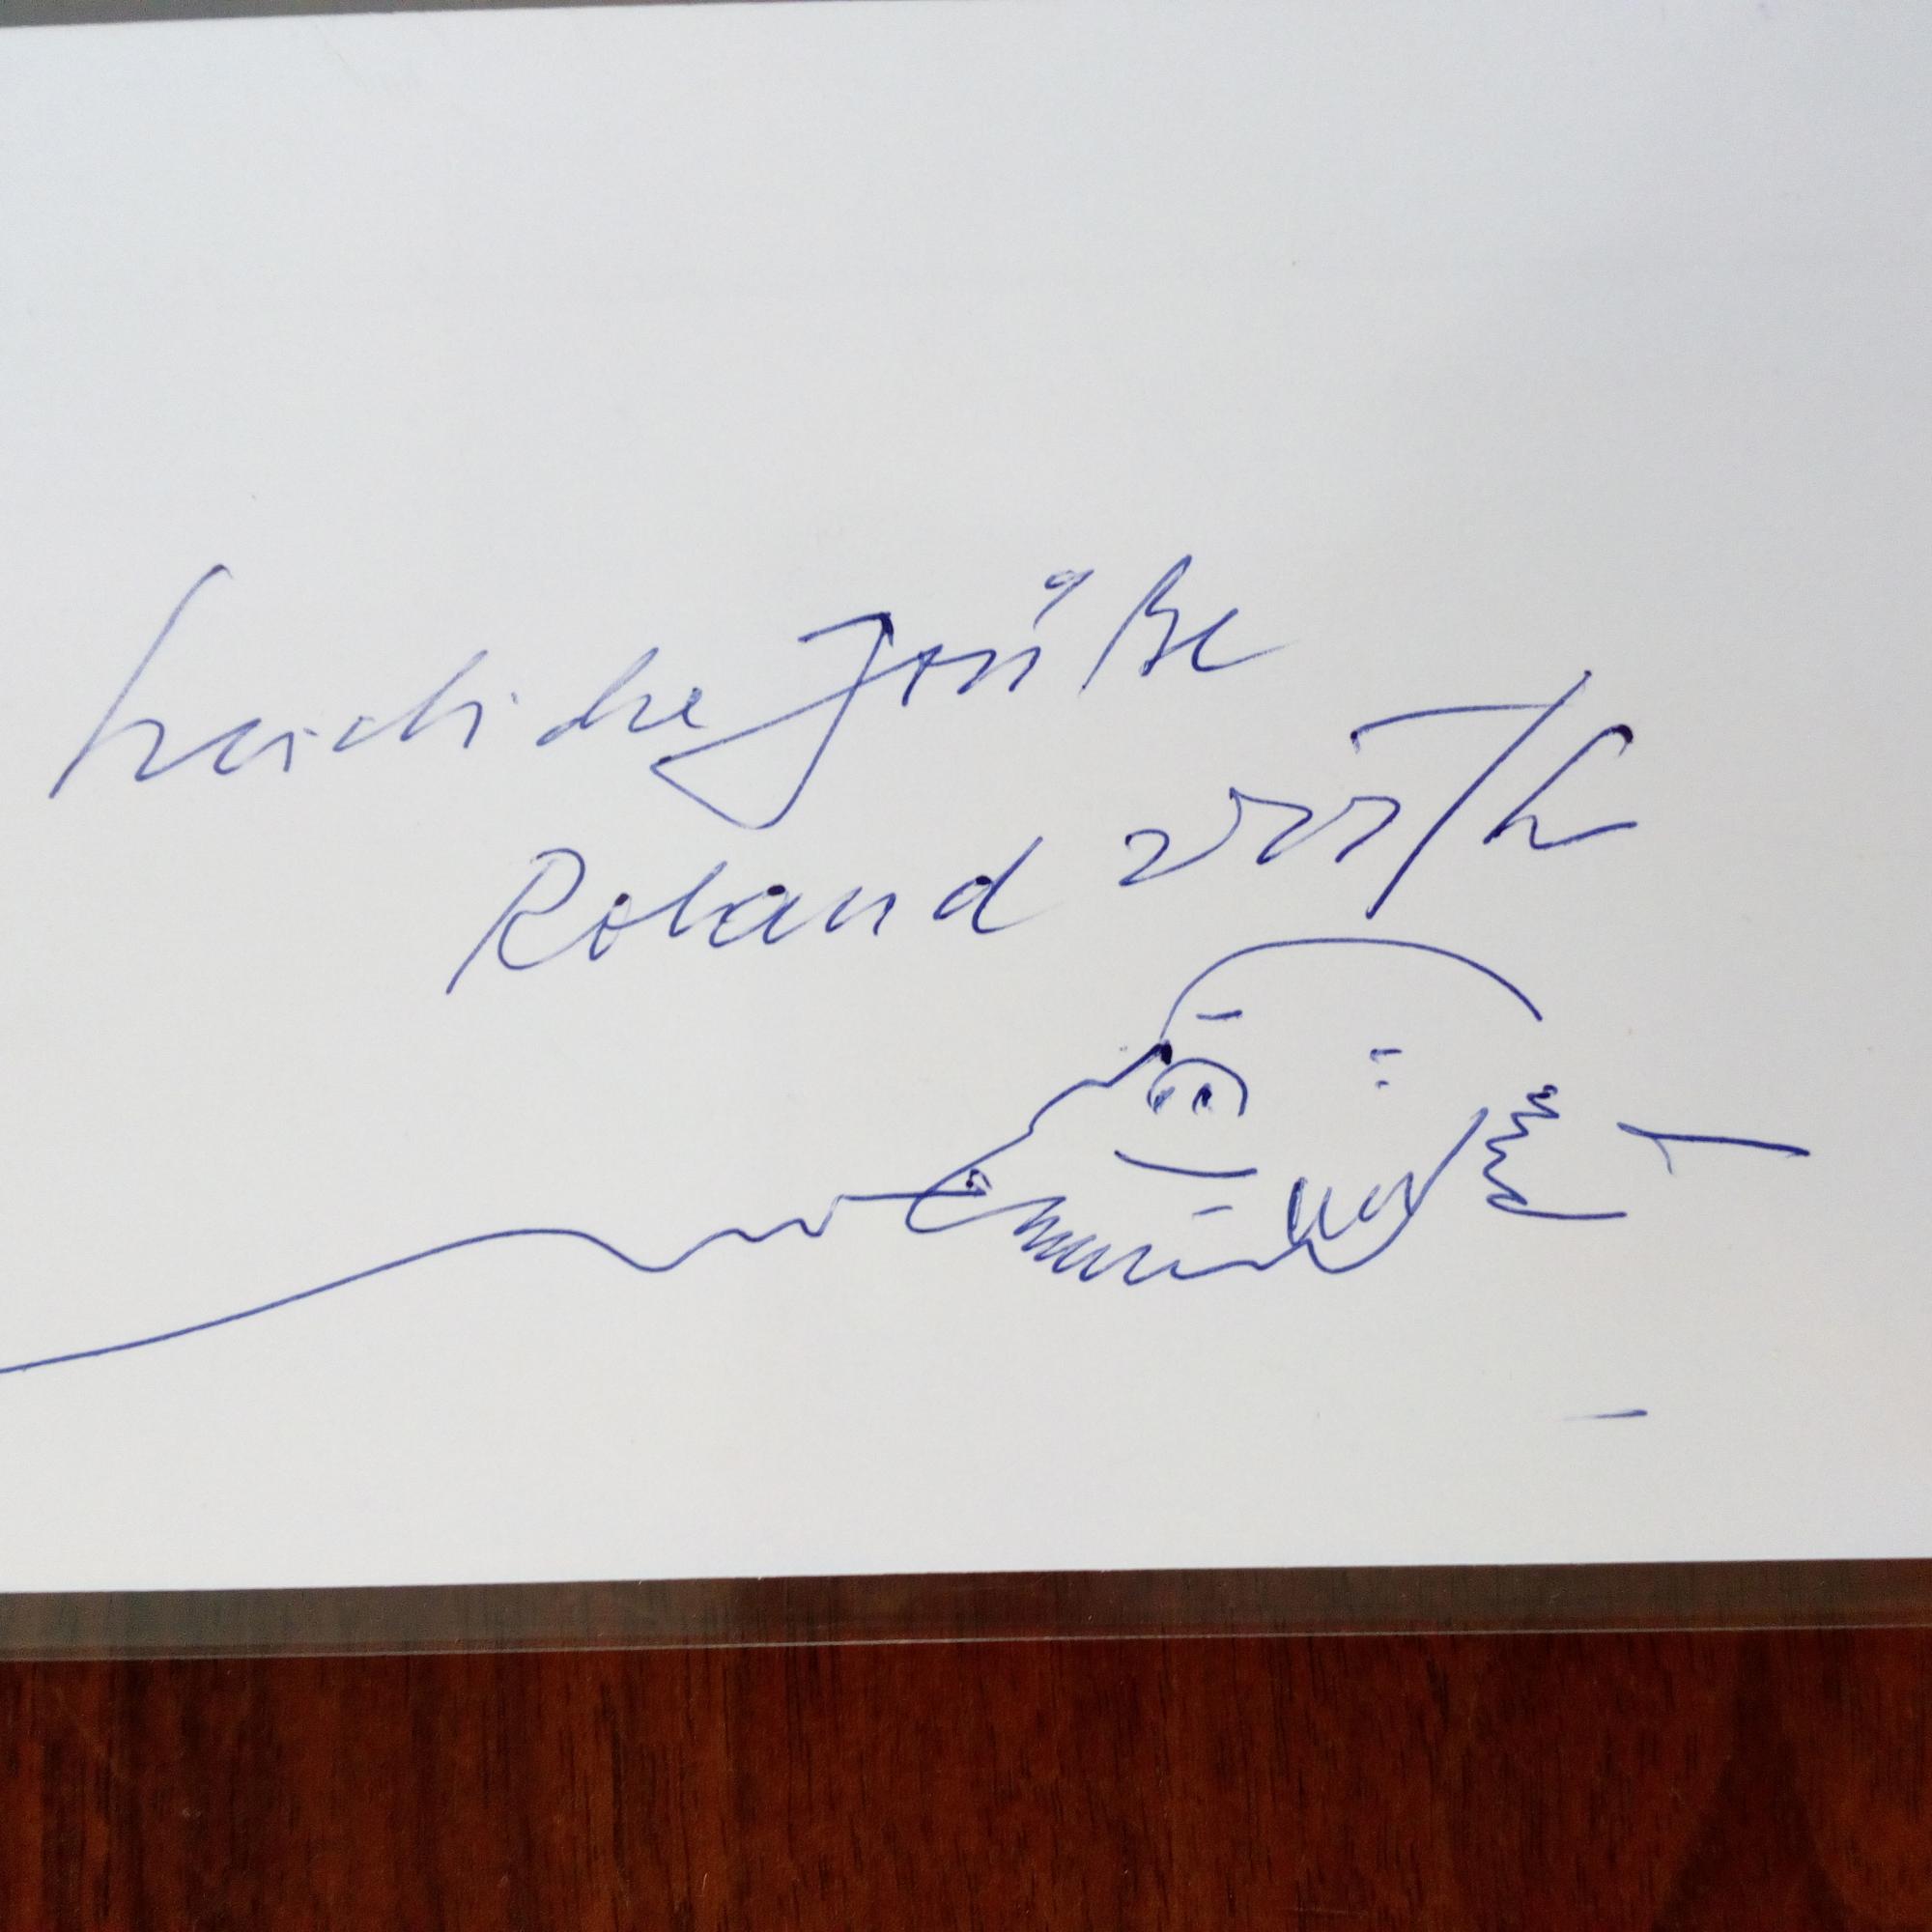 herzliche Grüße
Roland